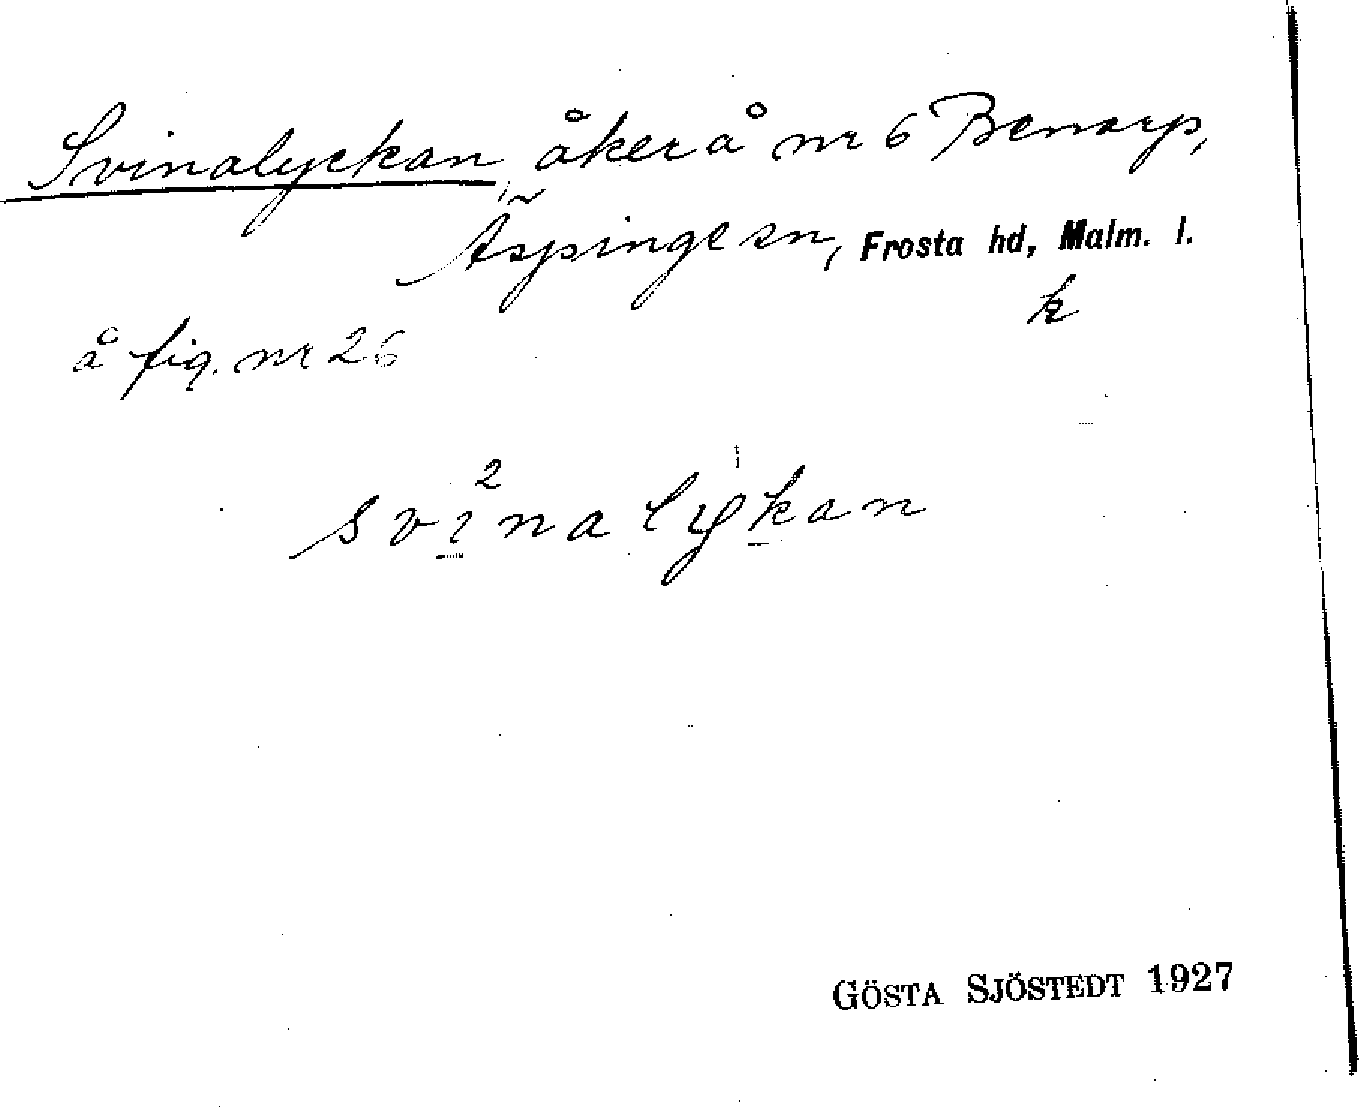 Svinalyckan, åker å nr 6 Benarp,
Äspinge sn, Frosta hd, Malm. l.
k
å fig. nr 26
2
svinalykan
GÖSTA SJÖSTEDT 1927